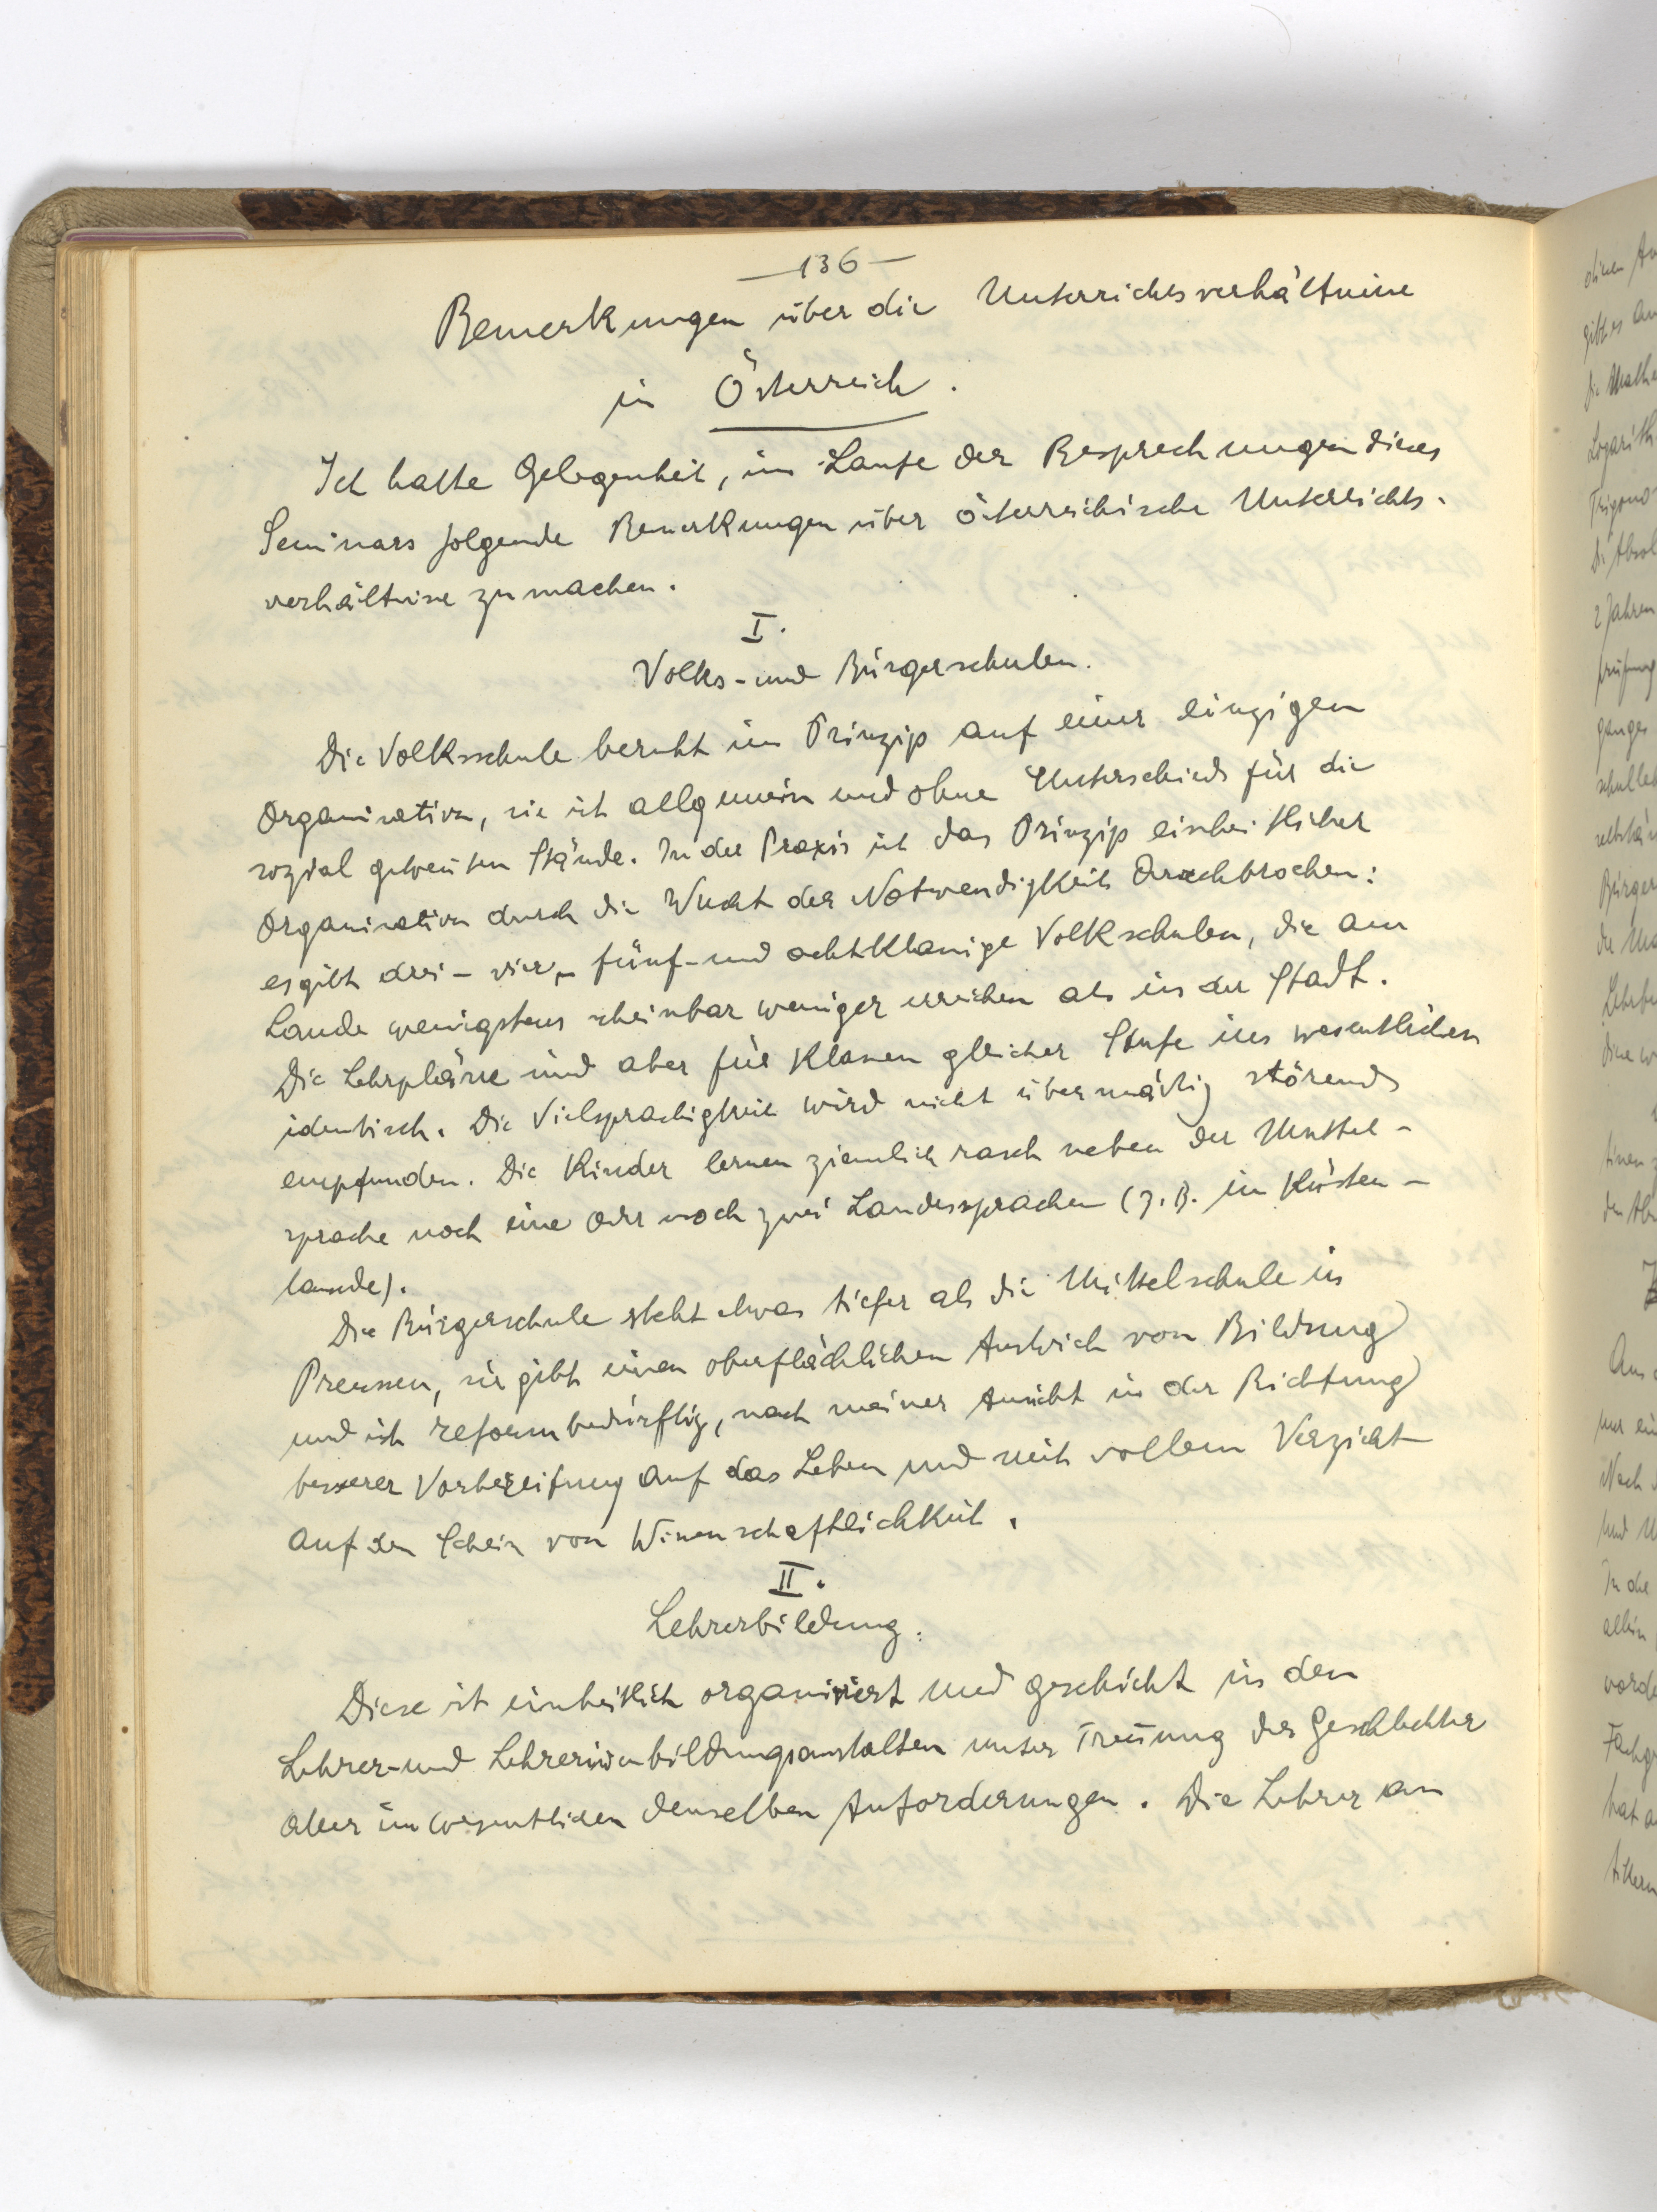 —136—
Bemerkungen über die Unterrichtsverhältnisse
in Österreich.
Ich hatte Gelegenheit, im Laufe der Besprechungen dieses
Seminars folgende Bemerkungen über österreichische Unterrichts-
verhältnisse zu machen.
I.
Volks- und Bürgerschulen.
Die Volksschule beruht im Prinzip auf einer einzigen
Organisation, sie ist allgemein und ohne Unterschied für die
sozial getrennten Stände. In der Praxis ist das Prinzip einheitlicher
Organisation durch die Wucht der Notwendigkeit durchbrochen:
es gibt drei- vier- fünf- und achtklassige Volkschulen, die am
Lande wenigstens scheinbar weniger erreichen als in der Stadt.
Die Lehrpläne sind aber für Klassen gleicher Stufe im wesentlichen
identisch. Die Vielsprachigkeit wird nicht übermäßig störend
empfunden. Die Kinder lernen ziemlich rasch neben der Mutter-
sprache noch eine oder noch zwei Landessprachen (z.B. im Küsten-
lande).
Die Bürgerschule steht etwas tiefer als die Mittelschule in
Preussen, sie gibt einen oberflächlichen Anstrich von Bildung
und ist reformbedürftig, nach meiner Ansicht in der Richtung
besserer Vorbereitung auf das Leben und mit vollem Verzicht
auf den Schein von Wissenschaftlichkeit.
II.
Lehrerbildung:
Diese ist einheitlich organisiert und geschieht in den
Lehrer- und Lehrerinnenbildungsanstalten unter Trennung der Geschlechter
aber im wesentlichen denselben Anforderungen. Die Lehrer an